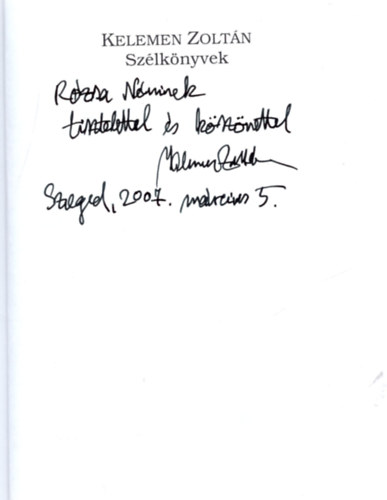 KELEMEN ZOLTÁN
Szélkönyvek
Rózsa Néninek
tisztelettel és köszönettel
Kelemen Zoltán
Szeged, 2007. március 5.